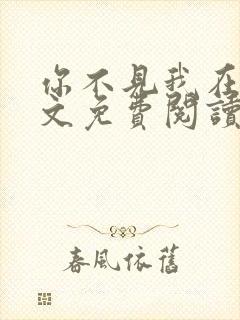 你不見我在
文免費閱讀
春風依舊